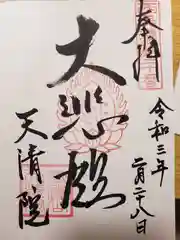 奉拝
令和三年
二月二十八日
大悲殿
天清院